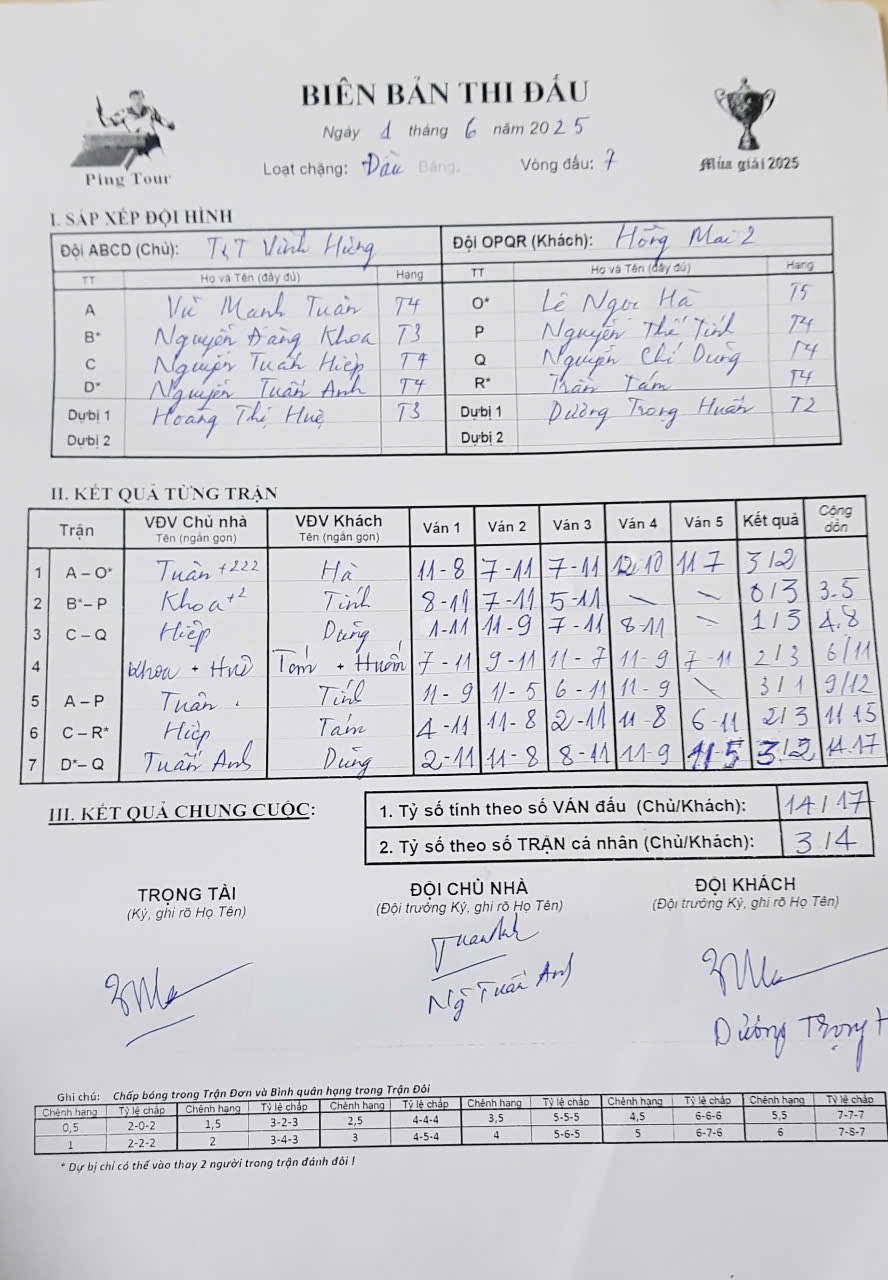 BIÊN BẢN THI ĐẤU
Ngày 1 tháng 6 năm 2025
Loạt chặng: Đầu Bảng: Vòng đấu: 7
Ping Tour
Mùa giải 2025
I. SẮP XẾP ĐỘI HÌNH
Đội ABCD (Chủ): T&T Vĩnh Hưng Đội OPQR (Khách): Hồng Mai 2
TT Họ và Tên (đầy đủ) Hạng TT Họ và Tên (đầy đủ) Hạng
A Vũ Mạnh Tuân T4 O* Lê Ngọc Hà T5
B* Nguyễn Đăng Khoa T3 P Nguyễn Thế Tính T4
C Nguyễn Tuấn Hiệp T4 Q Nguyễn Chí Dũng T4
D* Nguyễn Tuấn Anh T4 R* Trần Tám T4
Dự bị 1 Hoàng Thị Huệ T3 Dự bị 1 Dương Trọng Huấn T2
Dự bị 2 Dự bị 2
II. KẾT QUẢ TỪNG TRẬN
Trận VĐV Chủ nhà Tên (ngắn gọn) VĐV Khách Tên (ngắn gọn) Ván 1 Ván 2 Ván 3 Ván 4 Ván 5 Kết quả Cộng dồn
1 A – O* Tuân +222 Hà 11-8 7-11 7-11 12-10 11 7 3/2
2 B* – P Khoa +2 Tính 8-11 7-11 5-11 \ \ 0/3 3.5
3 C – Q Hiệp Dũng 1-11 11-9 7-11 8-11 \ 1/3 4.8
4 Khoa + Huệ Tám + Huấn 7-11 9-11 11-7 11-9 7-11 2/3 6/11
5 A – P Tuân Tính 11-9 11-5 6-11 11-9 \ 3/1 9/12
6 C – R* Hiệp Tám 4-11 11-8 2-11 11-8 6-11 2/3 11 15
7 D* – Q Tuấn Anh Dũng 2-11 11-8 8-11 11-9 11-5 3/2 14.17
III. KẾT QUẢ CHUNG CUỘC:
1. Tỷ số tính theo số VÁN đấu (Chủ/Khách): 14/17
2. Tỷ số theo số TRẬN cá nhân (Chủ/Khách): 3/4
TRỌNG TÀI ĐỘI CHỦ NHÀ ĐỘI KHÁCH
(Ký, ghi rõ Họ Tên) (Đội trưởng Ký, ghi rõ Họ Tên) (Đội trưởng Ký, ghi rõ Họ Tên)
TuanAnh
Ng Tuấn Anh
Dương Trọng H
Ghi chú: Chấp bóng trong Trận Đơn và Bình quân hạng trong Trận Đôi
Chênh hạng Tỷ lệ chấp Chênh hạng Tỷ lệ chấp Chênh hạng Tỷ lệ chấp Chênh hạng Tỷ lệ chấp Chênh hạng Tỷ lệ chấp Chênh hạng Tỷ lệ chấp
0,5 2-0-2 1,5 3-2-3 2,5 4-4-4 3,5 5-5-5 4,5 6-6-6 5,5 7-7-7
1 2-2-2 2 3-4-3 3 4-5-4 4 5-6-5 5 6-7-6 6 7-8-7
* Dự bị chỉ có thể vào thay 2 người trong trận đánh đôi !